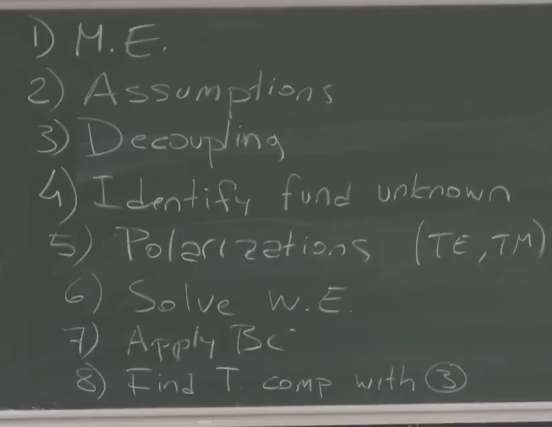 1) M.E.
2) Assumptions
3) Decoupling
4) Identify fund unknown
5) Polarizations (TE, TM)
6) Solve W.E.
7) Apply BC
8) Find T. comp with ③